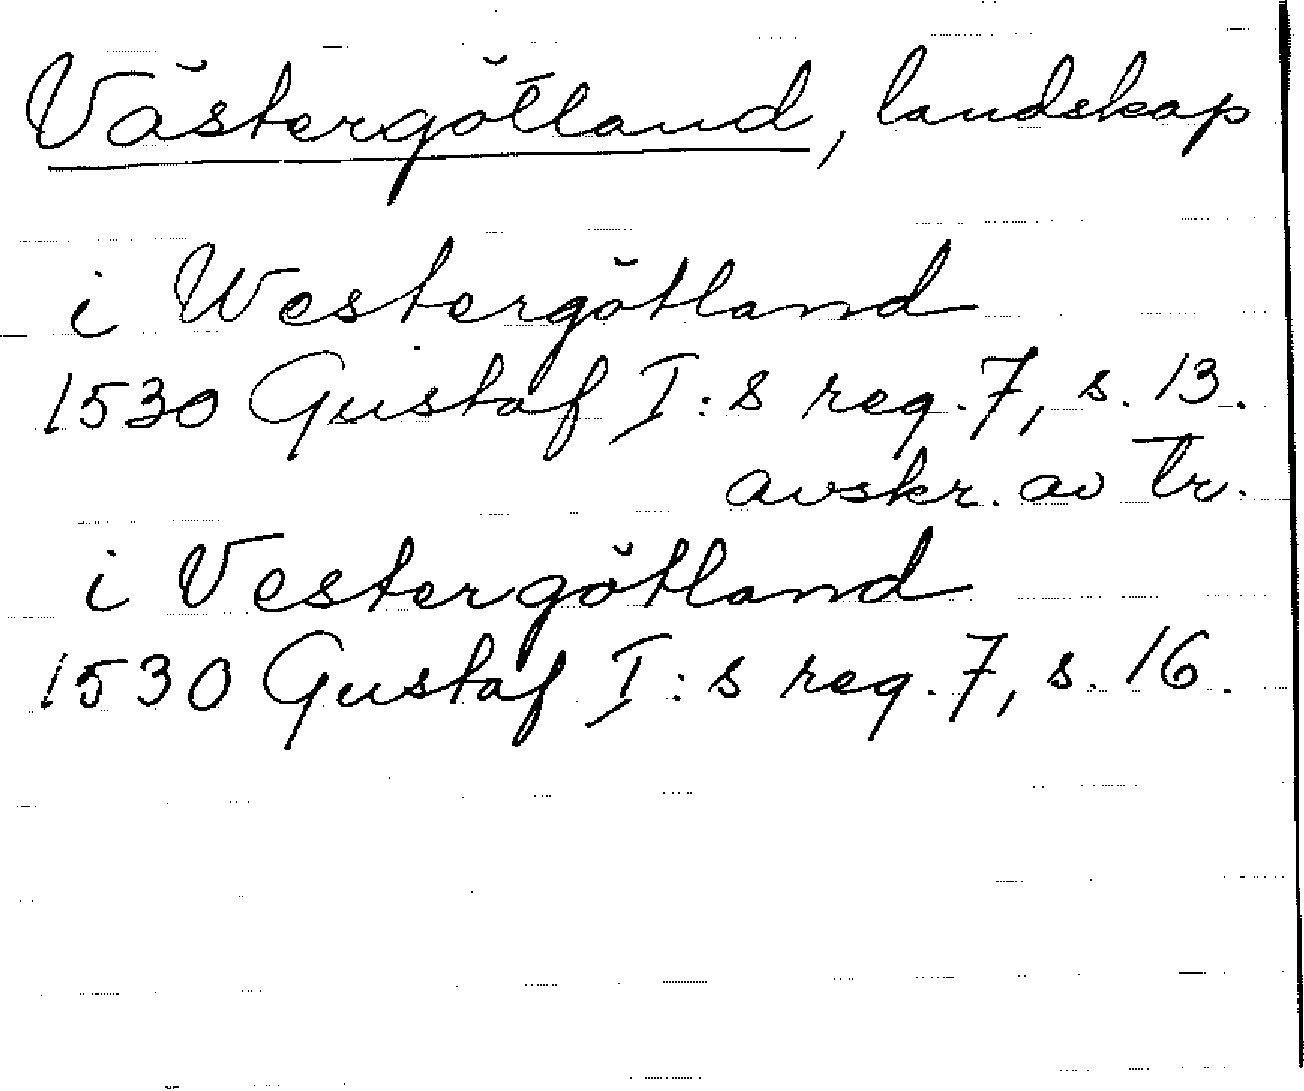 Västergötland, landskap
i Westergötland
1530 Gustaf I:s reg. 7, s. 13.
avskr. av tr.
i Vestergötland
1530 Gustaf I:s reg. 7, s. 16.